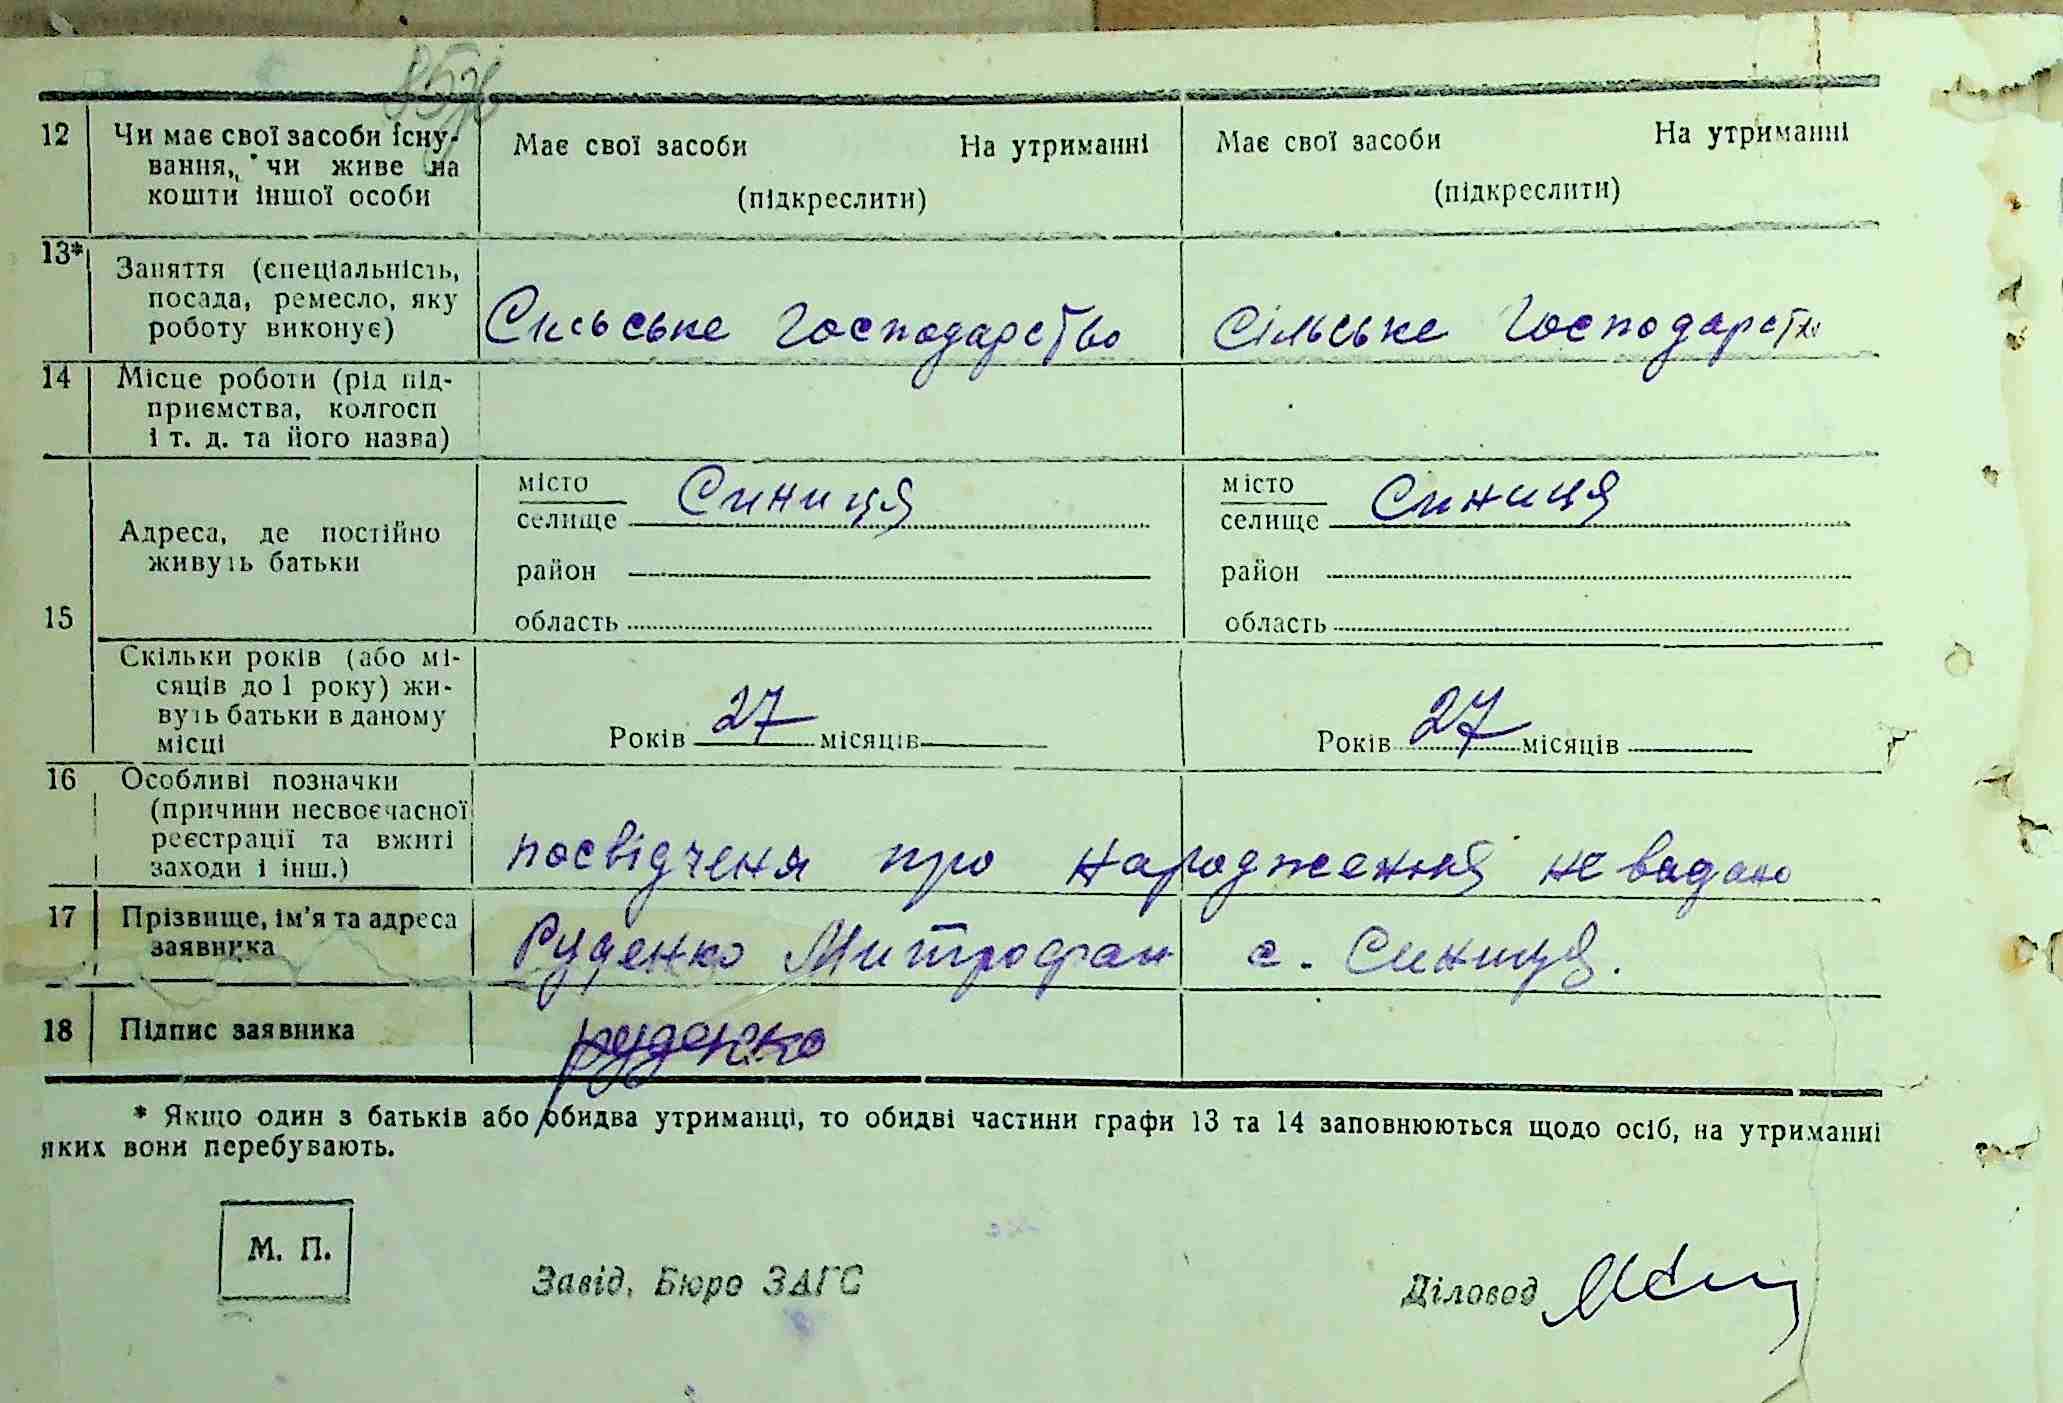 12 Чи має свої засоби існу- Має свої засоби На утриманні Має свої засоби На утриманні
вання, чи живе на
кошти іншої особи (підкреслити) (підкреслити)
13* Заняття (спеціальність,
посада, ремесло, яку
роботу виконує) Сильське Господарство Сільське Господарство
14 Місце роботи (рід під-
приємства, колгосп
і т. д. та його назва)
15 Адреса, де постійно
живуть батьки
місто Синиця місто Синиця
селище селище
район район
область область
Скільки років (або мі-
сяців до 1 року) жи-
вуть батьки в даному
місці Років 27 місяців Років 27 місяців
16 Особливі позначки
(причини несвоєчасної
реєстрації та вжиті
заходи і інш.) посвідченя про народження не видано
17 Прізвище, ім'я та адреса
заявника Руденко Митрофан с. Синиця.
18 Підпис заявника руденко
* Якщо один з батьків або обидва утриманці, то обидві частини графи 13 та 14 заповнюються щодо осіб, на утриманні
яких вони перебувають.
М. П.
Завід. Бюро ЗАГС Діловод